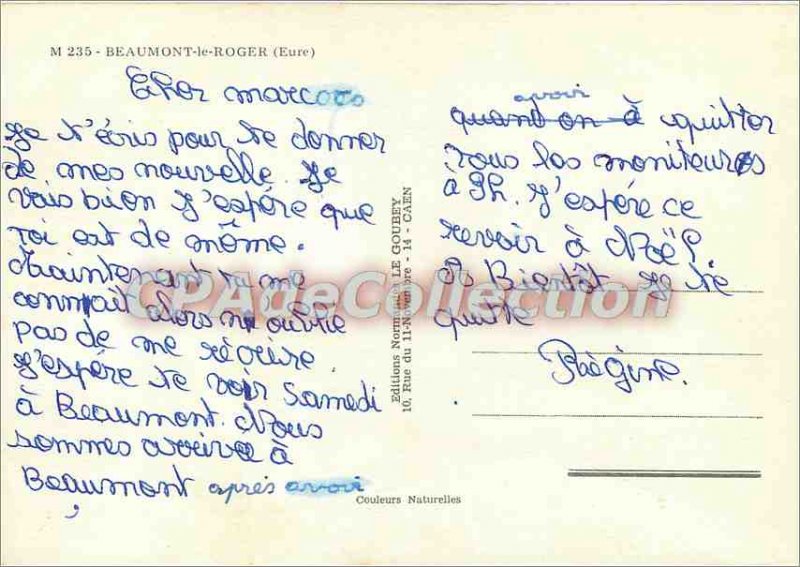 M 235 - BEAUMONT-le-ROGER (Eure)
Cher marcoco
Je t'écris pour te donner
de mes nouvelle. Je
vais bien J'espére que
toi est de même.
Maintenant tu me
connait alors n'oublie
pas de me réécire.
J'espére te voir Samedi
à Beaumont. Nous
sommes à
Beaumont après avoir
avoir
quand on à quitter
tous les moniteurs
à 9h. J'espére ce
revoir à Noël.
A Bientôt Je te
quitte
Règine.
Editions Normandes LE GOUBEY
10, Rue du 11-Novembre - 14 - CAEN
Couleurs Naturelles
CPAdeCollection